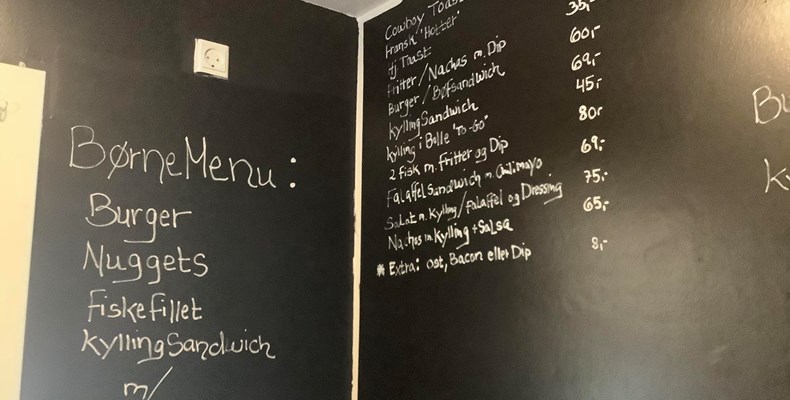 BørneMenu:
Burger
Nuggets
Fiskefillet
kyllingSandwich
m/
Cowboy Toast
Fransk "Hotter" 35,-
Hj Toast
Fritter/Nachos m. Dip 60,-
Burger/Bøfsandwich 69,-
kyllingSandwich 45,-
kylling i Bolle "To-Go"
2 Fisk m. Fritter og Dip 80,-
Falaffelsandwich m. Chilimayo 69,-
Salat m. Kylling/falaffel og Dressing 75,-
Nachos m. Kylling + Salsa 65,-
* Extra: ost, Bacon eller Dip 8,-
Bu
k